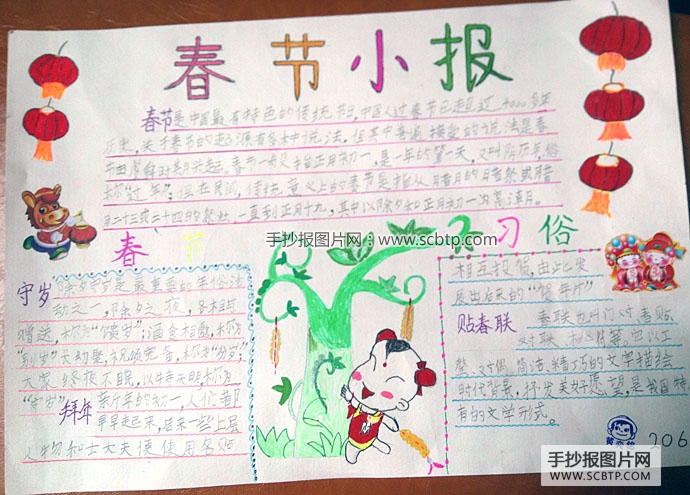 春节小报
春节是中国最有特色的传统节日,中国人过春节已超过4000多年
历史,关于春节的起源有各种说法,但其中普遍接受的说法是春
节由虞舜时期兴起。春节一般指正月初一,是一年的第一天,又叫阴历年,俗
称“过年”;但在民间,传统意义上的春节是指从腊月的腊祭或腊
月二十三或二十四的祭灶,一直到正月十九,其中以除夕和正月初一为高潮。
手抄报图片网:www.scbtp.com
春节习俗
守岁 “除夕守岁是最重要的年俗活
动之一,除夕之夜,各相与
赠送,称为“馈岁”;酒食相邀,称为
“别岁”;长幼聚饮,祝颂完备,称为“分岁”;
大家终夜不眠,以待天明,称为
“守岁”。
拜年 新年的初一,人们都
早早起来,后来一些上层
人物和士大夫便使用名贴
相互投贺,由此发
展出后来的“贺年片”
贴春联 春联也叫门对、春贴、
对联,它以工
整、对偶、简洁、精巧的文字描绘
时代背景,抒发美好愿望,是我国特
有的文学形式。
206
手抄报图片网
WWW.SCBTP.COM